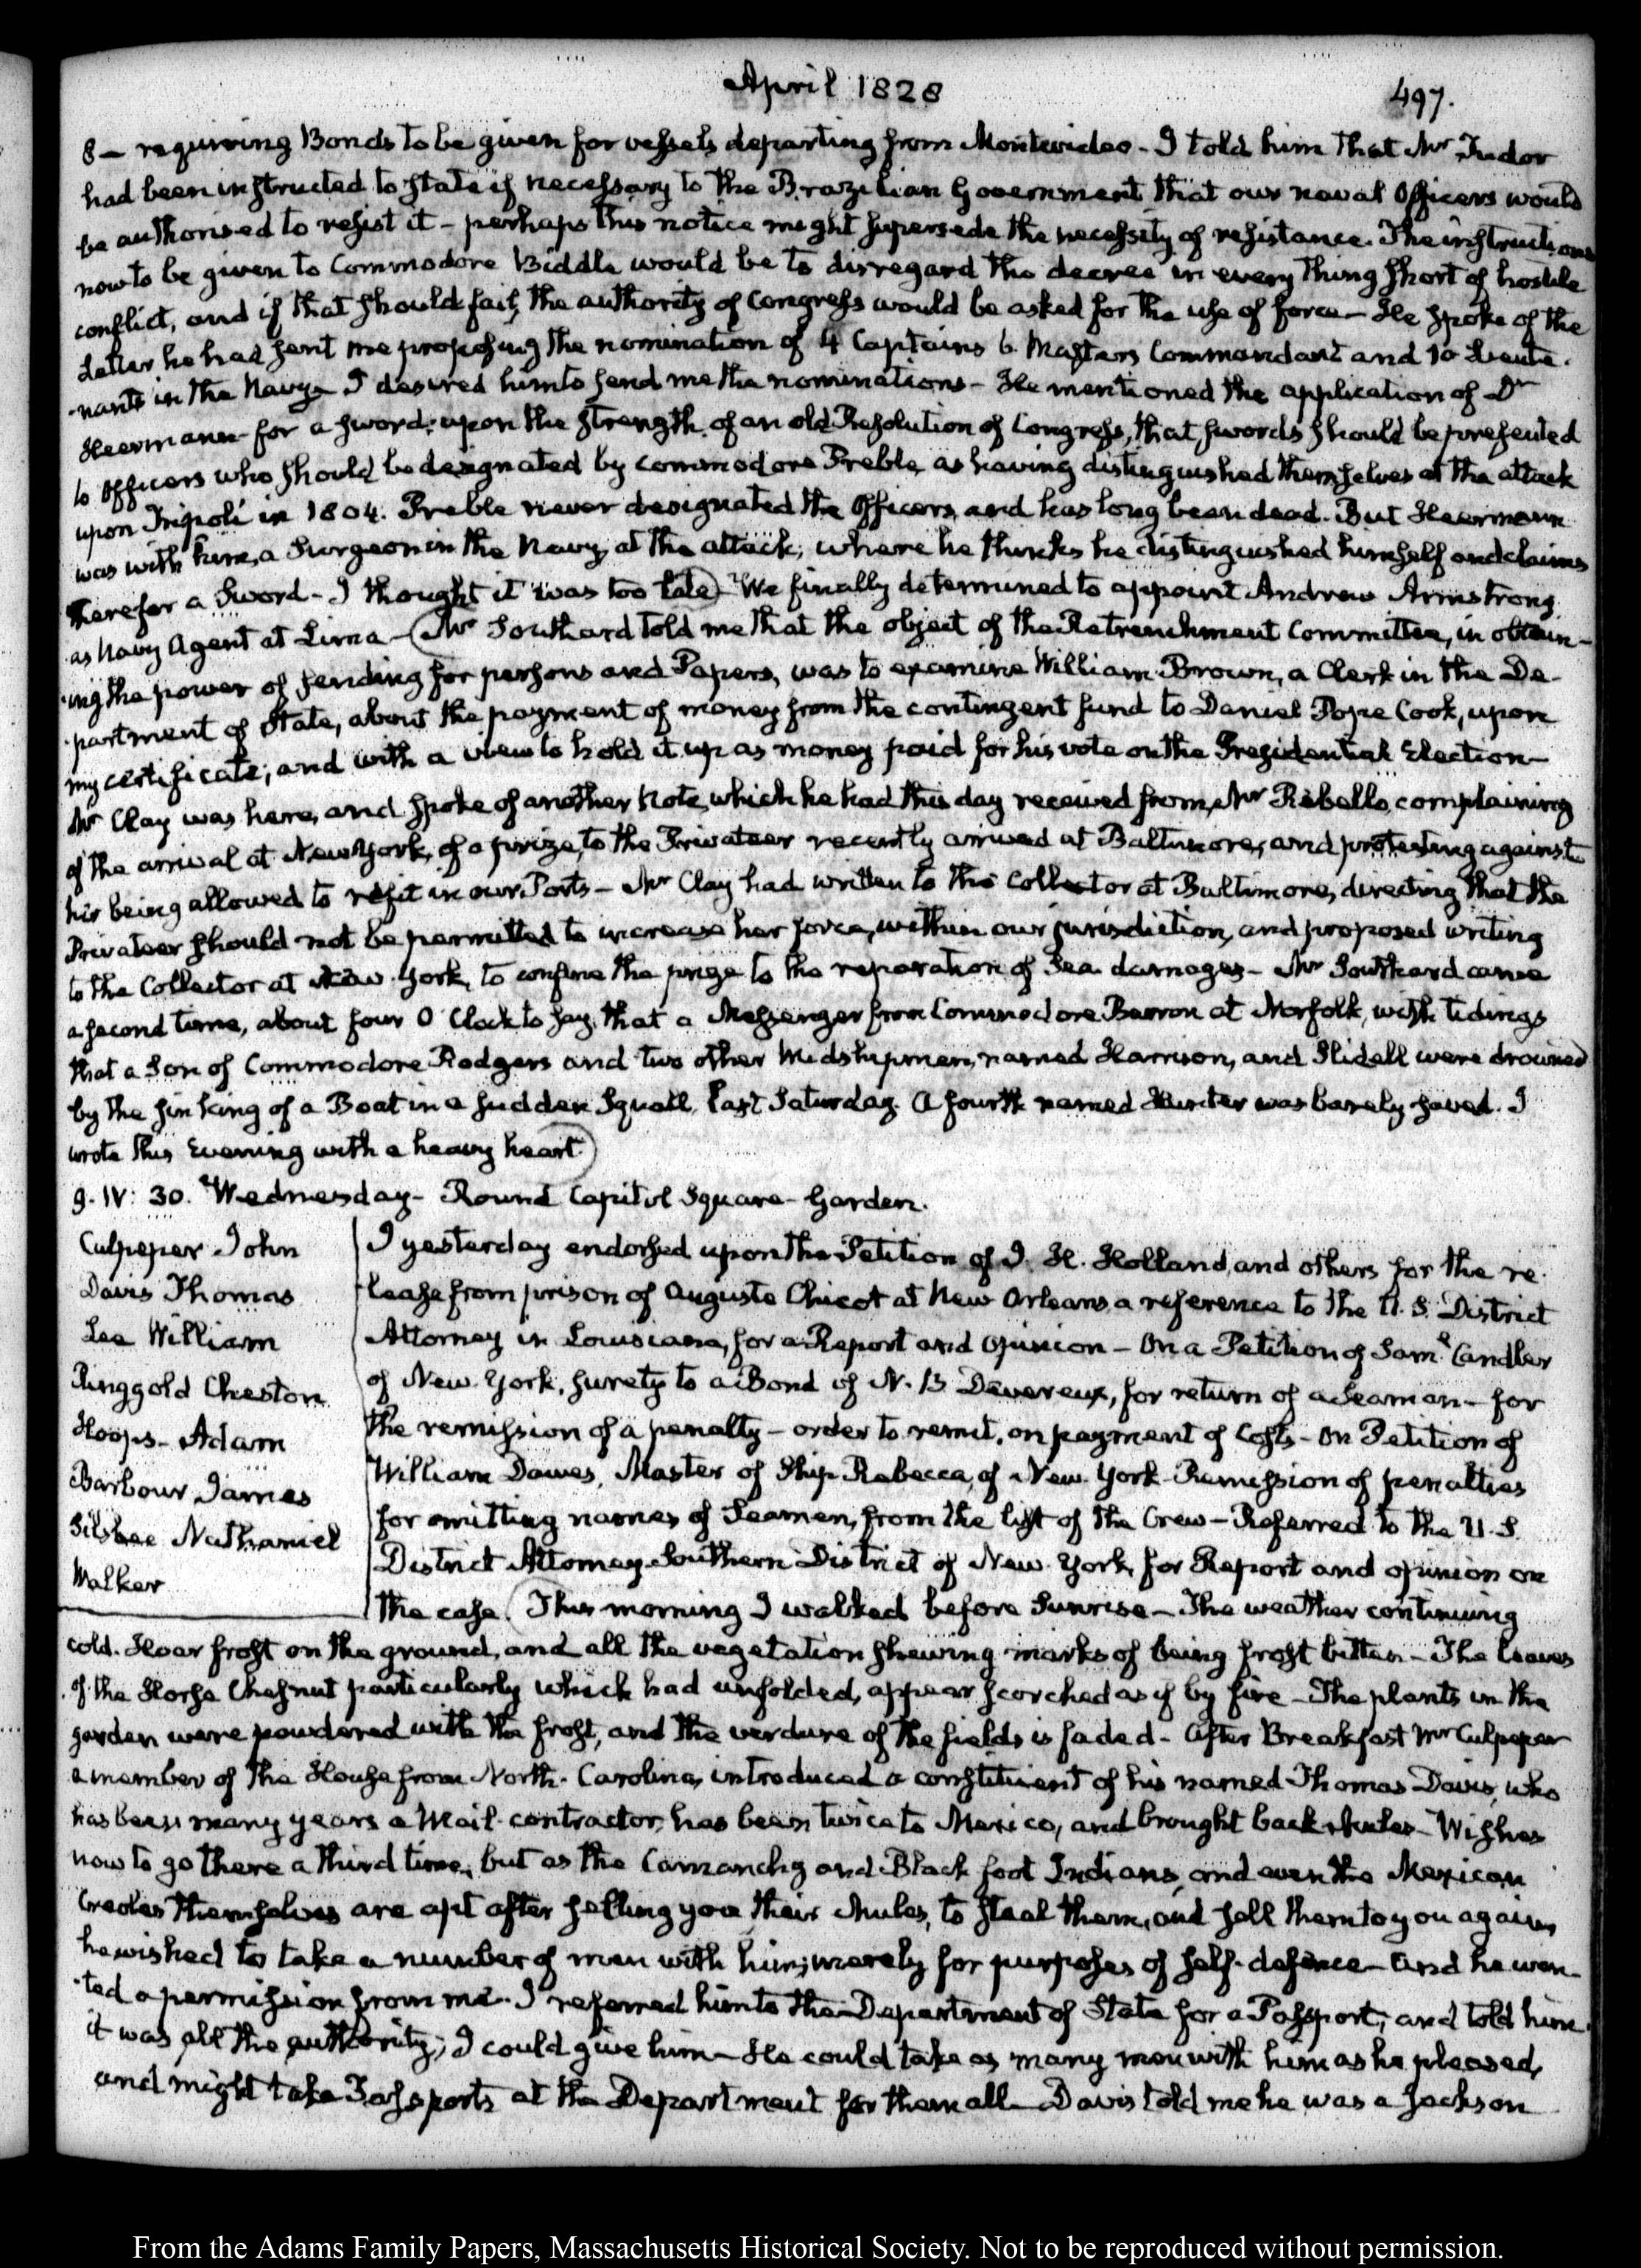 April 1828
497.
8 — requiring Bonds to be given for vessels departing from Montevideo - I told him that Mr Tudor
had been instructed to state if necessary to the Brazilian Government that our naval Officers would
be authorised to resist it - perhaps this notice might supersede the necessity of resistance. The instructions
now to be given to Commodore Biddle would be to disregard the decree in every thing short of hostile
conflict, and if that should fail, the authority of Congress would be asked for the use of force — He spoke of the
letter he had sent me proposing the nomination of 4 Captains 6. Masters Commandant and 10 Lieute-
-nants in the Navy - I desired him to send me the nominations - He mentioned the application of Dr
Heermann for a sword; upon the strength of an old Resolution of Congress, that swords should be presented
to Officers who should be designated by Commodore Preble, as having distinguished themselves at the attack
upon Tripoli in 1804. Preble never designated the Officers, and has long been dead. But Heermann
was with him, a Surgeon in the Navy, at the attack; where he thinks he distinguished himself and claims
therefor a Sword - I thought it was too late) We finally determined to appoint Andrew Armstrong
as Navy Agent at Lima - (Mr Southard told me that the object of the Retrenchment Committee, in obtain-
-ing the power of sending for persons and Papers, was to examine William Brown, a Clerk in the De-
-partment of State, about the payment of money from the contingent fund to Daniel Pope Cook, upon
my certificate; and with a view to hold it up as money paid for his vote on the Presidential Election —
Mr Clay was here, and spoke of another Note, which he had this day received from Mr Rebello, complaining
of the arrival at New York, of a prize, to the Privateer recently arrived at Baltimore, and protesting against
his being allowed to refit in our Ports - Mr Clay had written to the Collector at Baltimore, directing that the
Privateer should not be permitted to increase her force, within our jurisdiction, and proposed writing
to the Collector at New York, to confine the prize to the reparation of Sea damages - Mr Southard came
a second time, about four O'Clock to say, that a Messenger from Commodore Barron at Norfolk, with tidings
that a Son of Commodore Rodgers and two other Midshipmen, named Harrison, and Slidell were drowned
by the sinking of a Boat in a sudden Squall, last Saturday. A fourth named Hunter was barely saved. I
wrote this Evening with a heavy heart.)
9. IV: 30. Wednesday - Round Capitol Square - Garden.
Culpeper John
Davis Thomas
Lee William
Ringgold Cheston
Hoops - Adam
Barbour James
Silsbee Nathaniel
Walker
I yesterday endorsed upon the Petition of J. H. Holland, and others for the re-
-lease from prison of Auguste Chicot at New Orleans a reference to the U.S. District
Attorney in Louisiana, for a Report and Opinion - On a Petition of Saml Candler
of New York, surety to a Bond of N. B Devereux, for return of a Seaman - for
the remission of a penalty - order to remit, on payment of Costs - On Petition of
William Dawes, Master of Ship Rebecca, of New York - Remission of penalties
for omitting names of Seamen, from the list of the Crew - Referred to the U.S.
District Attorney Southern District of New York, for Report and opinion on
the case. (This morning I walked before Sunrise - The weather continuing
cold. Hoar frost on the ground, and all the vegetation shewing marks of being frost bitten - The leaves
of the Horse Chesnut particularly which had unfolded, appear scorched as if by fire - The plants in the
garden were powdered with the frost, and the verdure of the fields is faded - After Breakfast Mr Culpeper
a member of the House from North-Carolina, introduced a constituent of his named Thomas Davis, who
has been many years a Mail-contractor, has been twice to Mexico, and brought back Mules - Wishes
now to go there a third time, but as the Camanchy and Black foot Indians, and even the Mexican
Creoles themselves are apt after selling you their Mules, to steal them, and sell them to you again,
he wished to take a number of men with him; merely for purposes of self-defence - And he wan-
-ted a permission from me. I referred him to the Department of State for a Passport, and told him
it was all the authority, I could give him - He could take as many men with him as he pleased,
and might take Passports at the Department for them all - Davis told me he was a Jackson
From the Adams Family Papers, Massachusetts Historical Society. Not to be reproduced without permission.